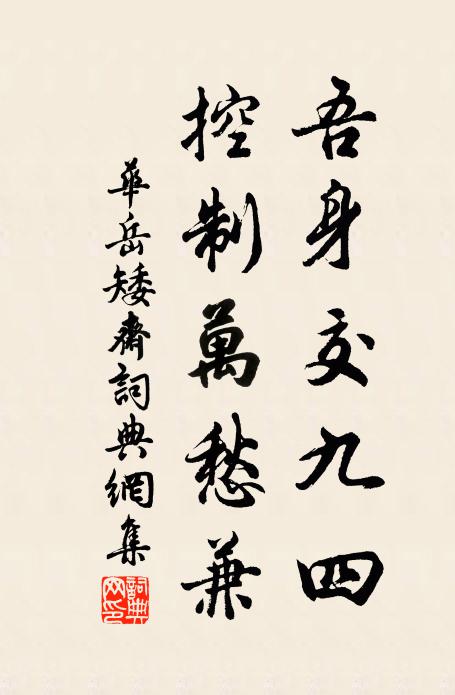 吾身交九四
控制萬愁兼
華岳矮齋詞典網集
詞典網印